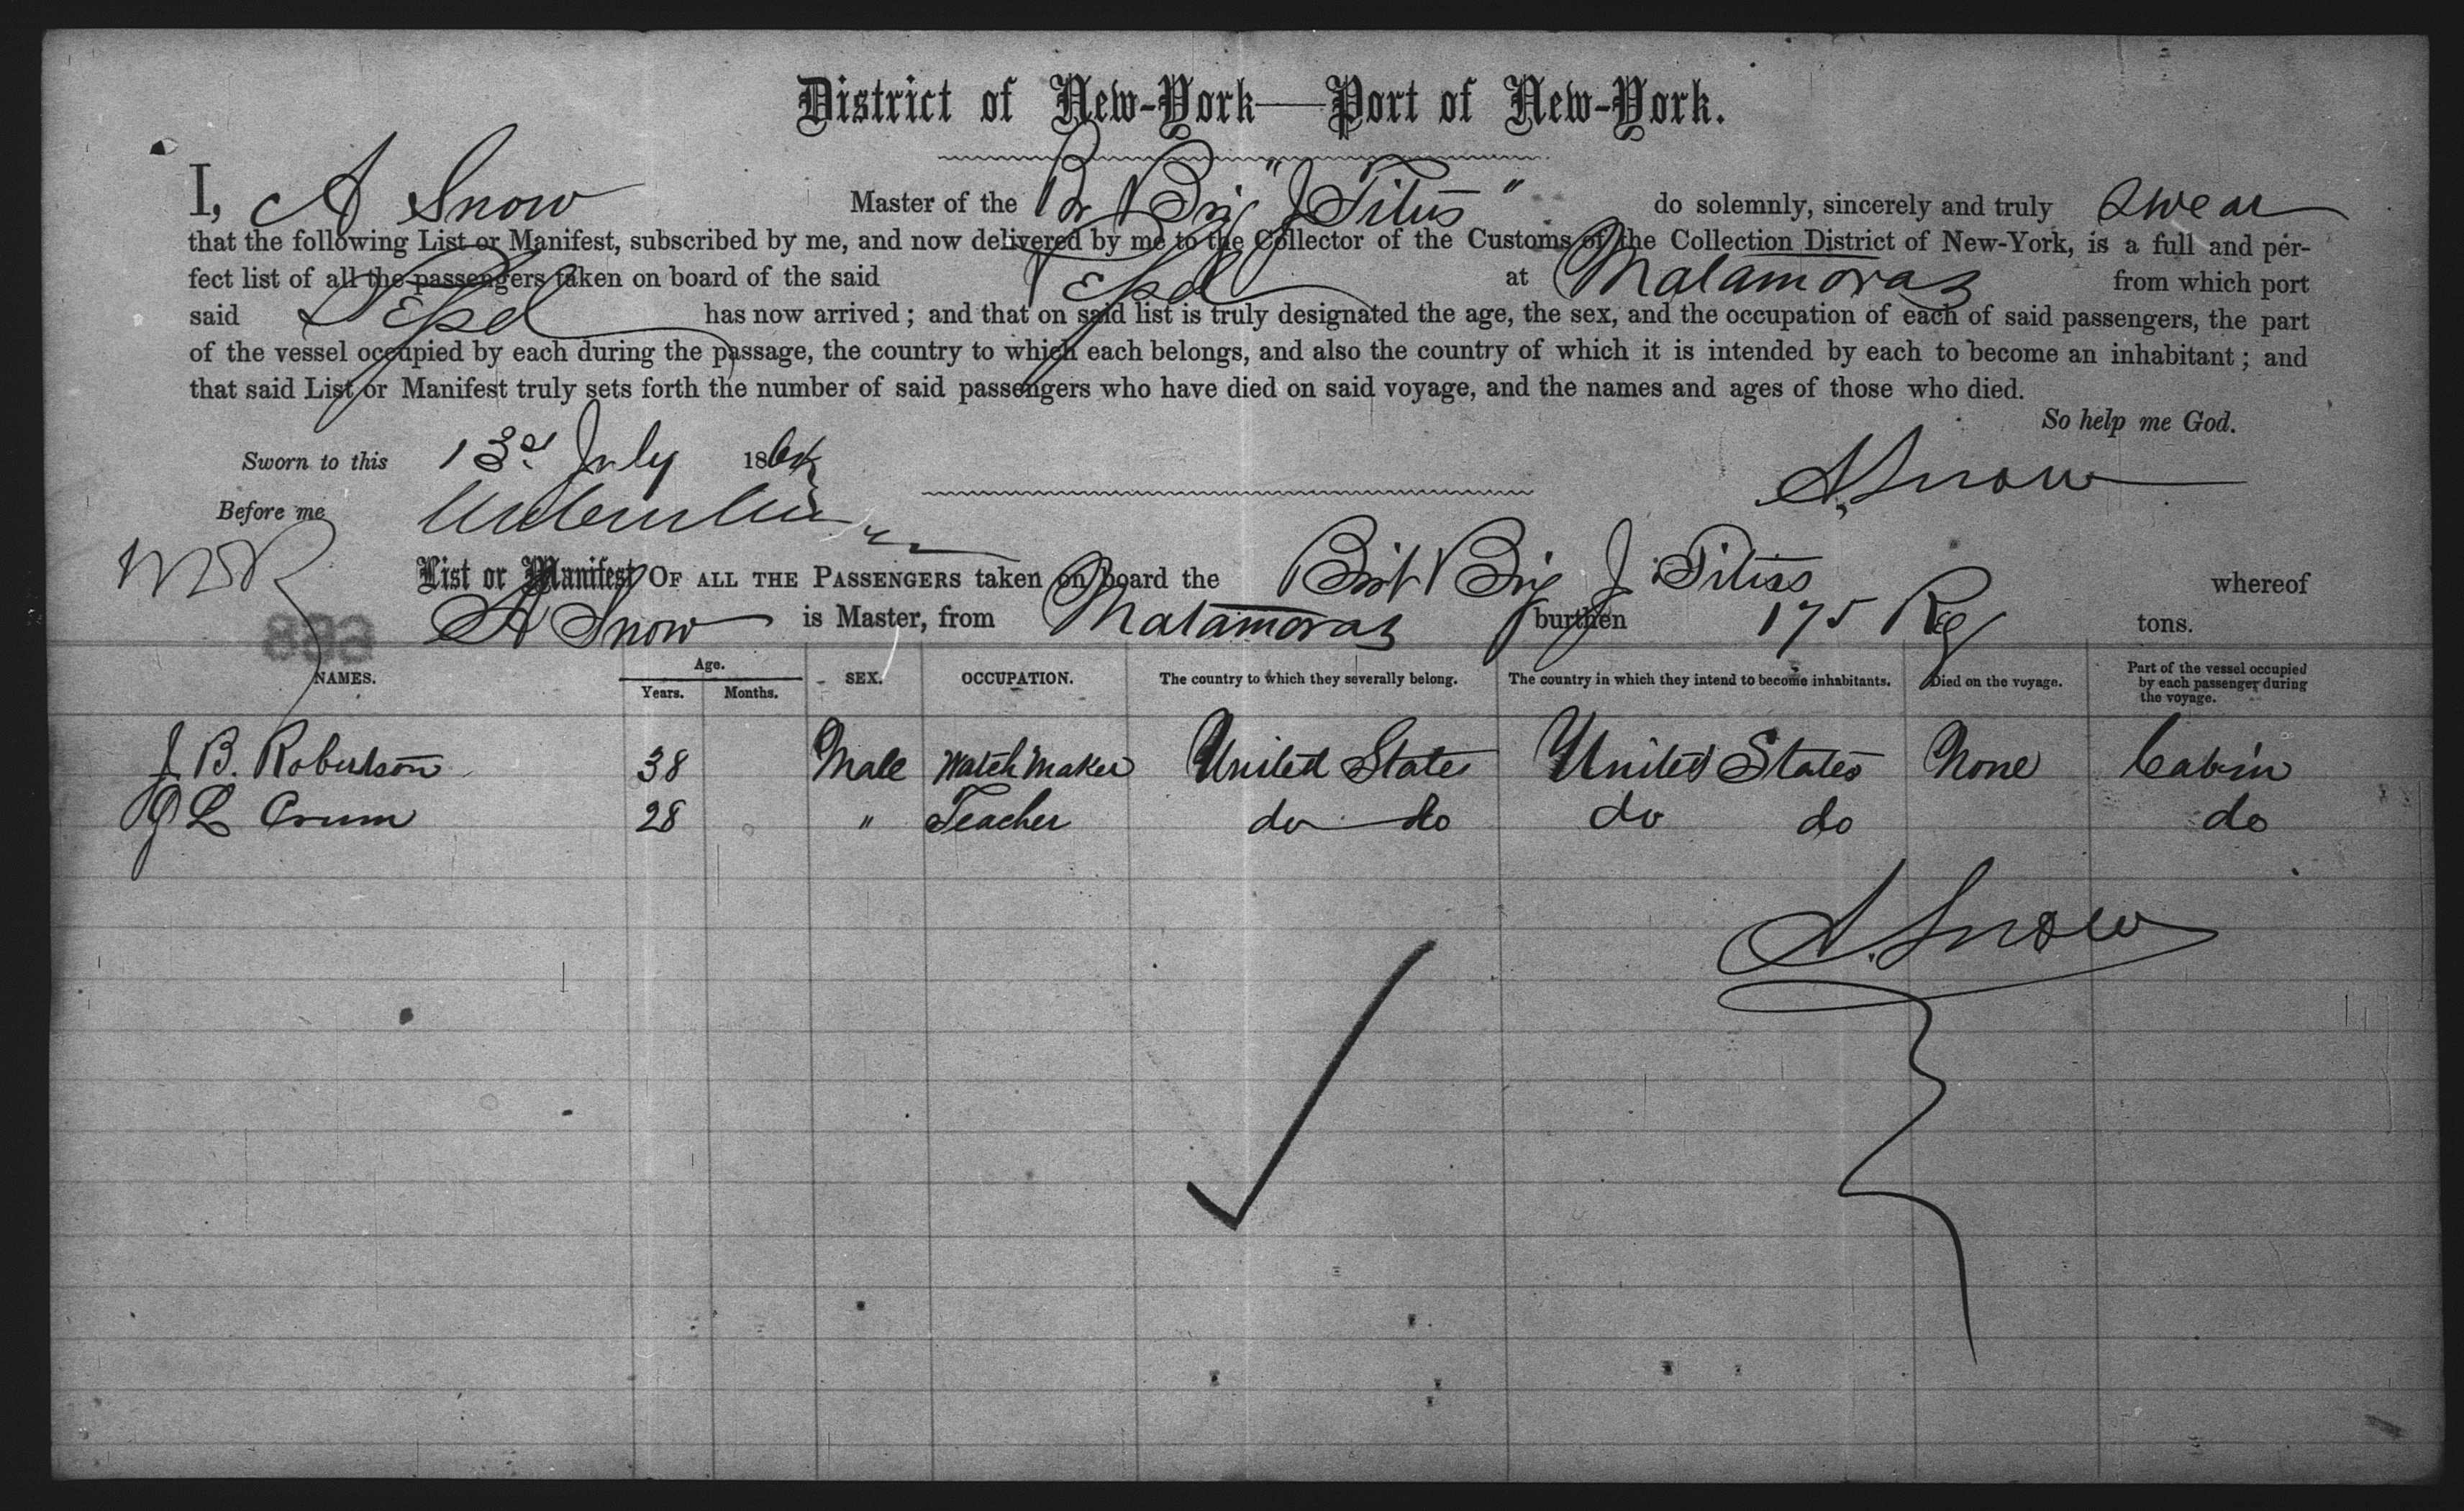 District of New-York—Port of New-York.
I, A Snow Master of the Br Brig "J Titus" do solemnly, sincerely and truly swear
that the following List or Manifest, subscribed by me, and now delivered by me to the Collector of the Customs of the Collection District of New-York, is a full and per-
fect list of all the passengers taken on board of the said at Matamoras from which port
said has now arrived; and that on said list is truly designated the age, the sex, and the occupation of each of said passengers, the part
of the vessel occupied by each during the passage, the country to which each belongs, and also the country of which it is intended by each to become an inhabitant; and
that said List or Manifest truly sets forth the number of said passengers who have died on said voyage, and the names and ages of those who died.
So help me God.
Sworn to this 13d July 1864
A Snow
Before me
List or Manifest OF ALL THE PASSENGERS taken on board the Brit Brig J Titus whereof
A Snow is Master, from Matamoras burthen 175 Reg tons.
893
NAMES. Age. Years. Months. SEX. OCCUPATION. The country to which they severally belong. The country in which they intend to become inhabitants. Died on the voyage. Part of the vessel occupied by each passenger during the voyage.
J. B. Robertson 38 Male Watch Maker United States United States None Cabin
J L Crum 28 " Teacher do do do do do
A. Snow